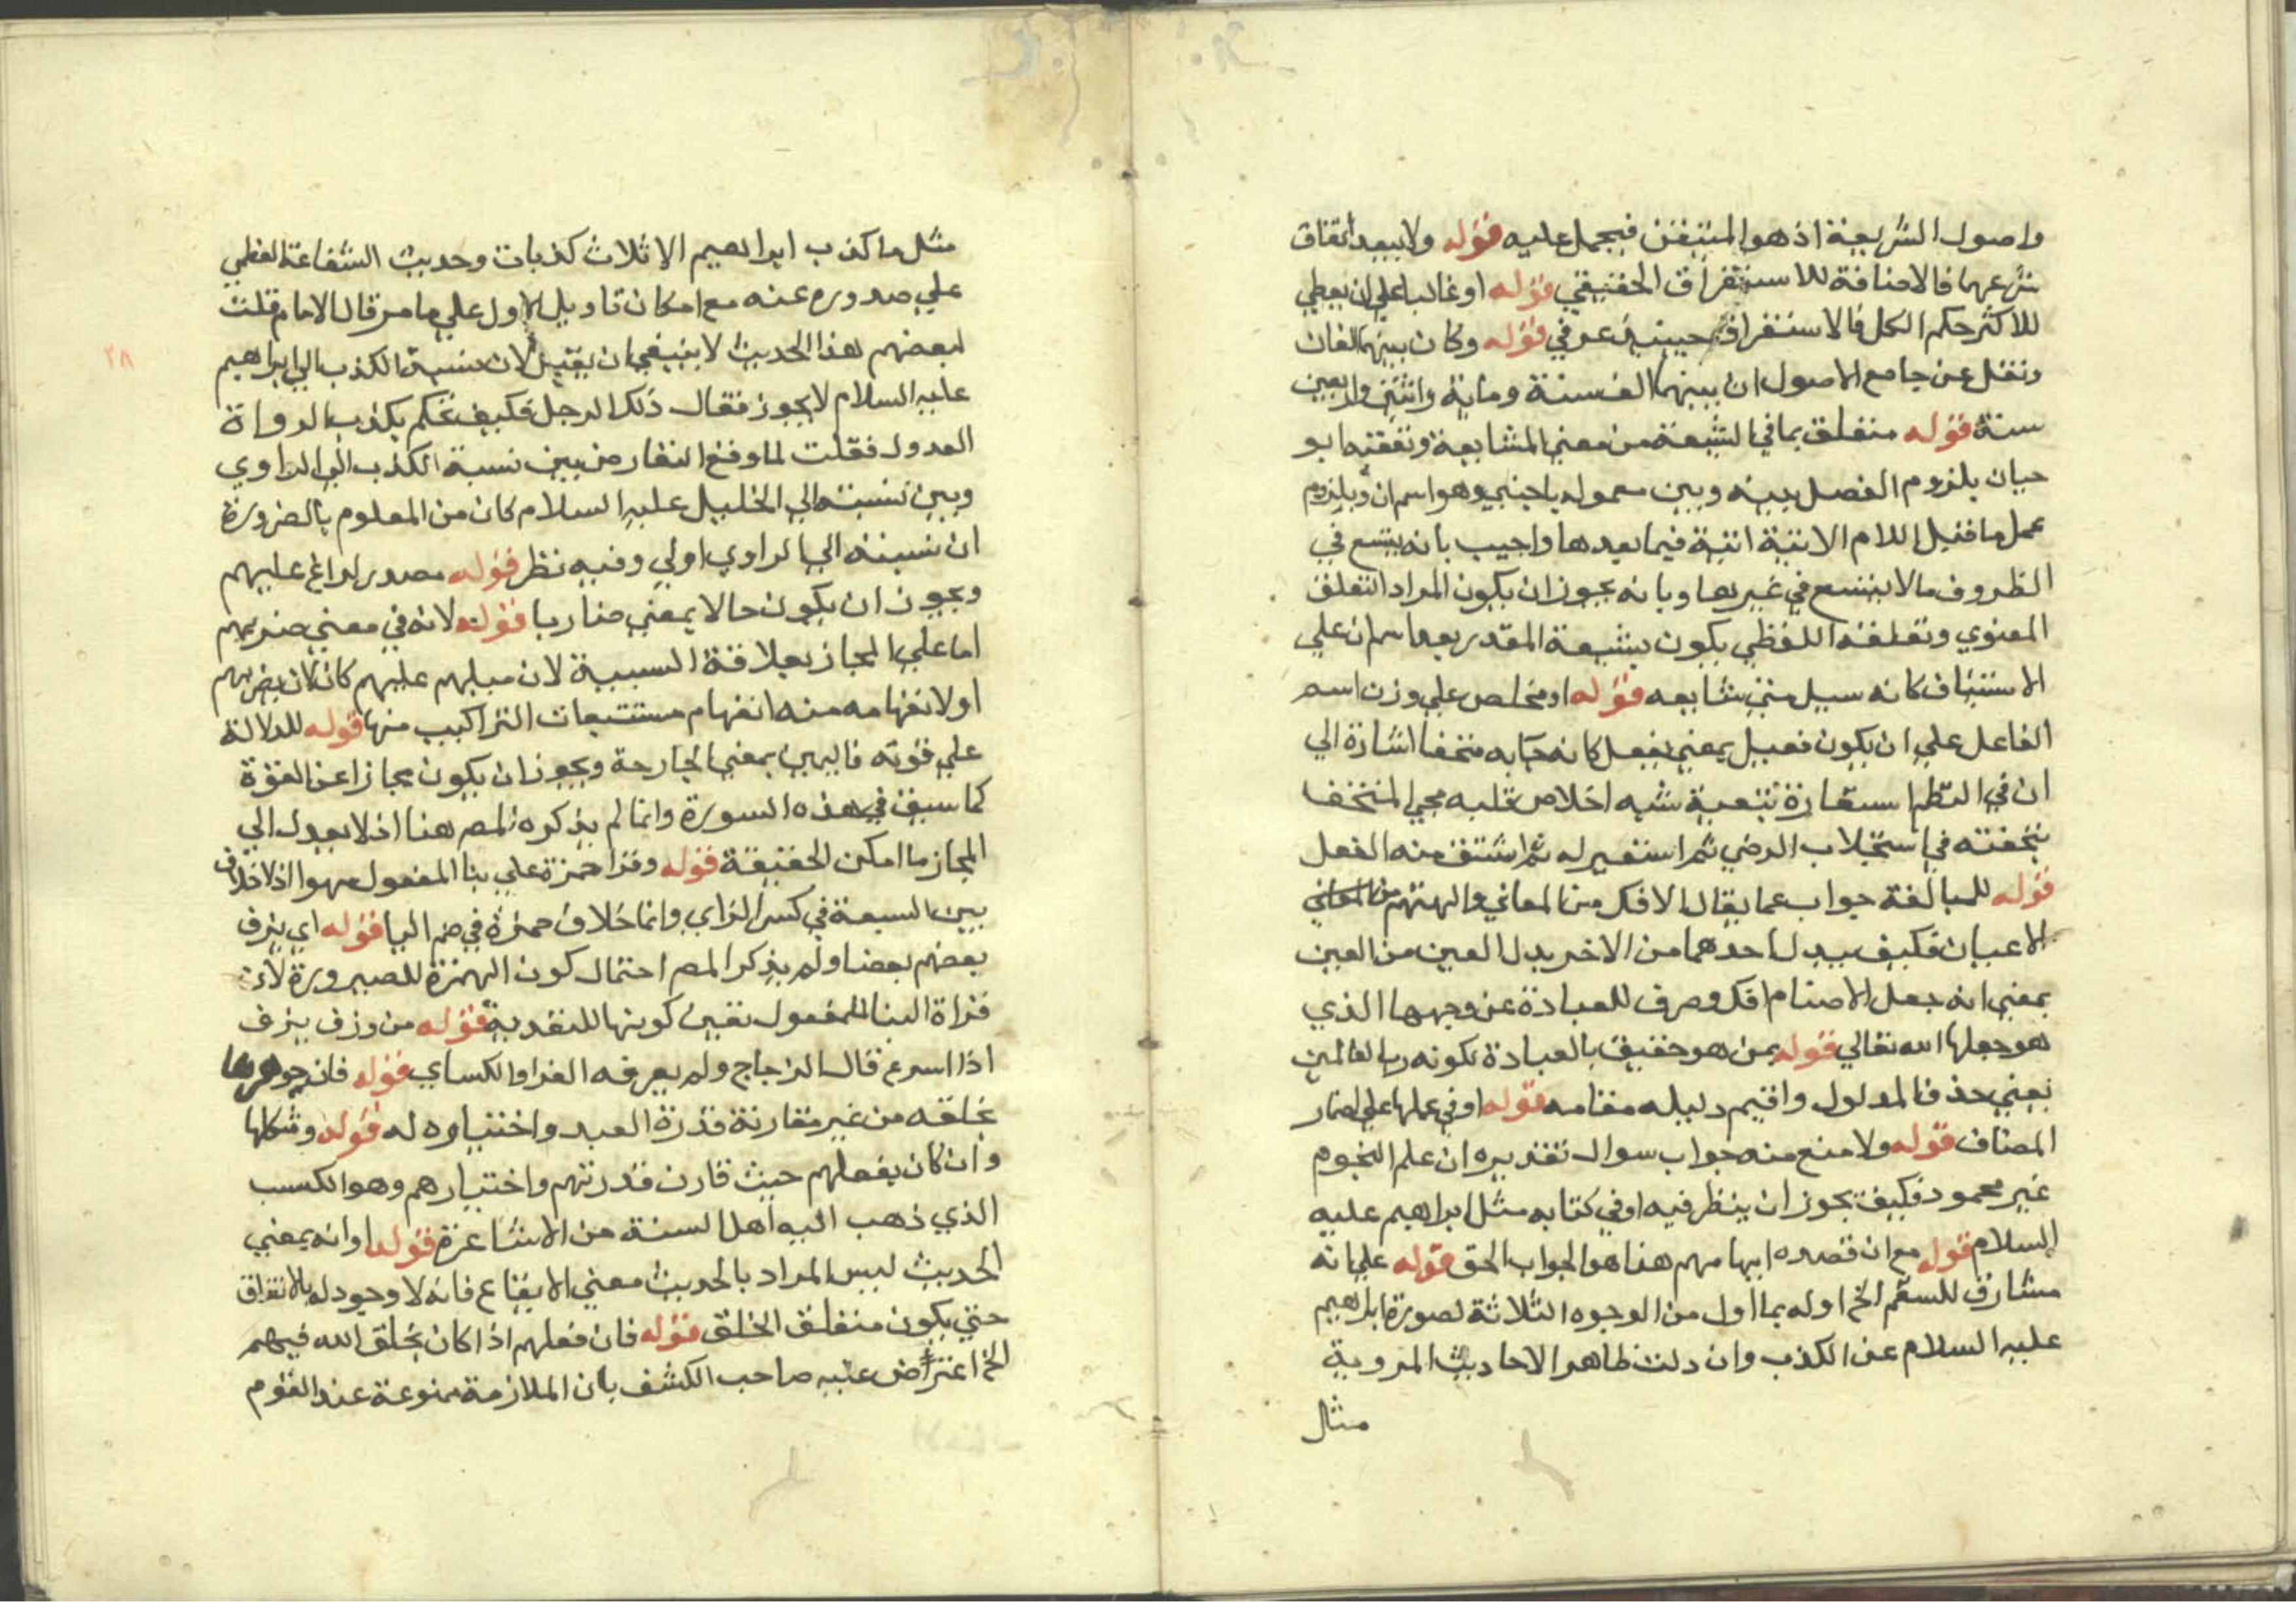 واصول الشريعة اذ هو المتيقن فيحمل عليه قوله ولا يبعد اتفاق
شرعهما فالاضافة للاستغراق الحقيقي قوله او غالبا علي ان يعطي
للاكثر حكم الكل فالاستغراق حينئذ عرفي قوله وكان بينهما الفان
ونقل عن جامع الاصول ان بينهما الف سنة وماية واثنتين واربعين
سنة قوله متعلق بما في الشيعة من معني المشايعة وتعقبه ابو
حيان بلزوم الفصل بينه وبين معموله باجنبي وهو اسم ان وبلزوم
عمل ما قبل اللام الابتدائية فيما بعدها واجيب بانه يتسع في
الظروف ما لا يتسع في غيرها وبانه يجوز ان يكون المراد التعلق
المعنوي وتعلقه اللفظي يكون بشيعة المقدر بعد اسم ان علي
الاستيناف كانه سيل متي شايعه قوله او مخلص علي وزن اسم
الفاعل علي ان يكون فعيل بمعني يفعل كانه جا به متحفا اشارة الي
ان في النظم استعارة تبعية شبه اخلاص قلبه بمجي المتحف
بتحفته في استجلاب الرضي ثم استعير له ثم اشتق منه الفعل
قوله للمبالغة جواب عما يقال الافك من المعاني والهتهم من
الاعيان فكيف يبدل احدهما من الاخر بدل العين من العين
بمعني انه جعل الاصنام افك وصرف للعبادة عن وجهها الذي
هو جعلها الله تعالي قوله بمن هو حقيق بالعبادة لكونه رب العالمين
بمعني حذف المدلول واقيم دليله مقامه قوله او في عملها علي اضمار
المضاف قوله ولا منع منه جواب سوال تقديره ان علم النجوم
غير محمود فكيف يجوز ان ينظر فيه او في كتابه مثل ابراهيم عليه
السلام قوله مع ان قصده ايهامهم هذا هو الجواب الحق قوله علي انه
مشارف للسقم الخ اوله بما اول من الوجوه الثلاثة لصورة ابراهيم
عليه السلام عن الكذب وان دلت ظاهر الاحاديث المروية
مثال
مثل ما كذب ابراهيم الا ثلاث كذبات وحديث الشفاعة العظمي
علي صدوره عنه مع امكان تاويل الاول علي ما مر قال الامام قلت
لبعضهم هذا الحديث لا ينبغي ان يقبل لان نسبة الكذب الي ابراهيم
عليه السلام لا يجوز فقال ذلك الرجل فكيف نحكم بكذب الرواة
العدول فقلت لما وقع التعارض بين نسبة الكذب الي الراوي
وبين نسبته الي الخليل عليه السلام كان من المعلوم بالضرورة
ان نسبته الي الراوي اولي وفيه نظر قوله مصدر لراغ عليهم
ويجوز ان يكون حالا بمعني ضاربا قوله لانه في معني ضربهم
اما علي المجاز بعلاقة السببية لان ميلهم عليهم كان لان يضربهم
اولا نفهامه منه انفهام مستتبعات التراكيب منها قوله للدلالة
علي قوته فاليمين بمعني الجارحة ويجوز ان يكون مجازا عن القوة
كما سبق في هذه السورة وانما لم يذكره المص هنا اذ لا يعدل الي
المجاز ما امكن الحقيقة قوله وقرا حمزة علي بنا المفعول سهو اذ لا خلاف
بين السبعة في كسر الزاي وانما خلاف حمزة في ضم اليا قوله اي يزف
بعضهم بعضا ولم يذكر المص احتمال كون الهمزة للصيرورة لان
قراة البنا للمفعول تعين كونها للتعدية قوله من وزف يزف
اذا اسرع قال الزجاج ولم يعرفه الفرا والكساي قوله فان جوهرها
بخلقه من غير مقارنة قدرة العبد واختياره له قوله وشكلها
وان كان بفعلهم حيث قارن قدرتهم واختيارهم وهو الكسب
الذي ذهب اليه اهل السنة من الاشاعرة قوله او انه بمعني
الحديث ليس المراد بالحديث معني الايقاع فانه لا وجود له بالاتفاق
حتي يكون متعلق الخلق قوله فان فعلهم اذا كان بخلق الله فيهم
الخ اعترض عليه صاحب الكشف بان الملازمة ممنوعة عند القوم
٢٨